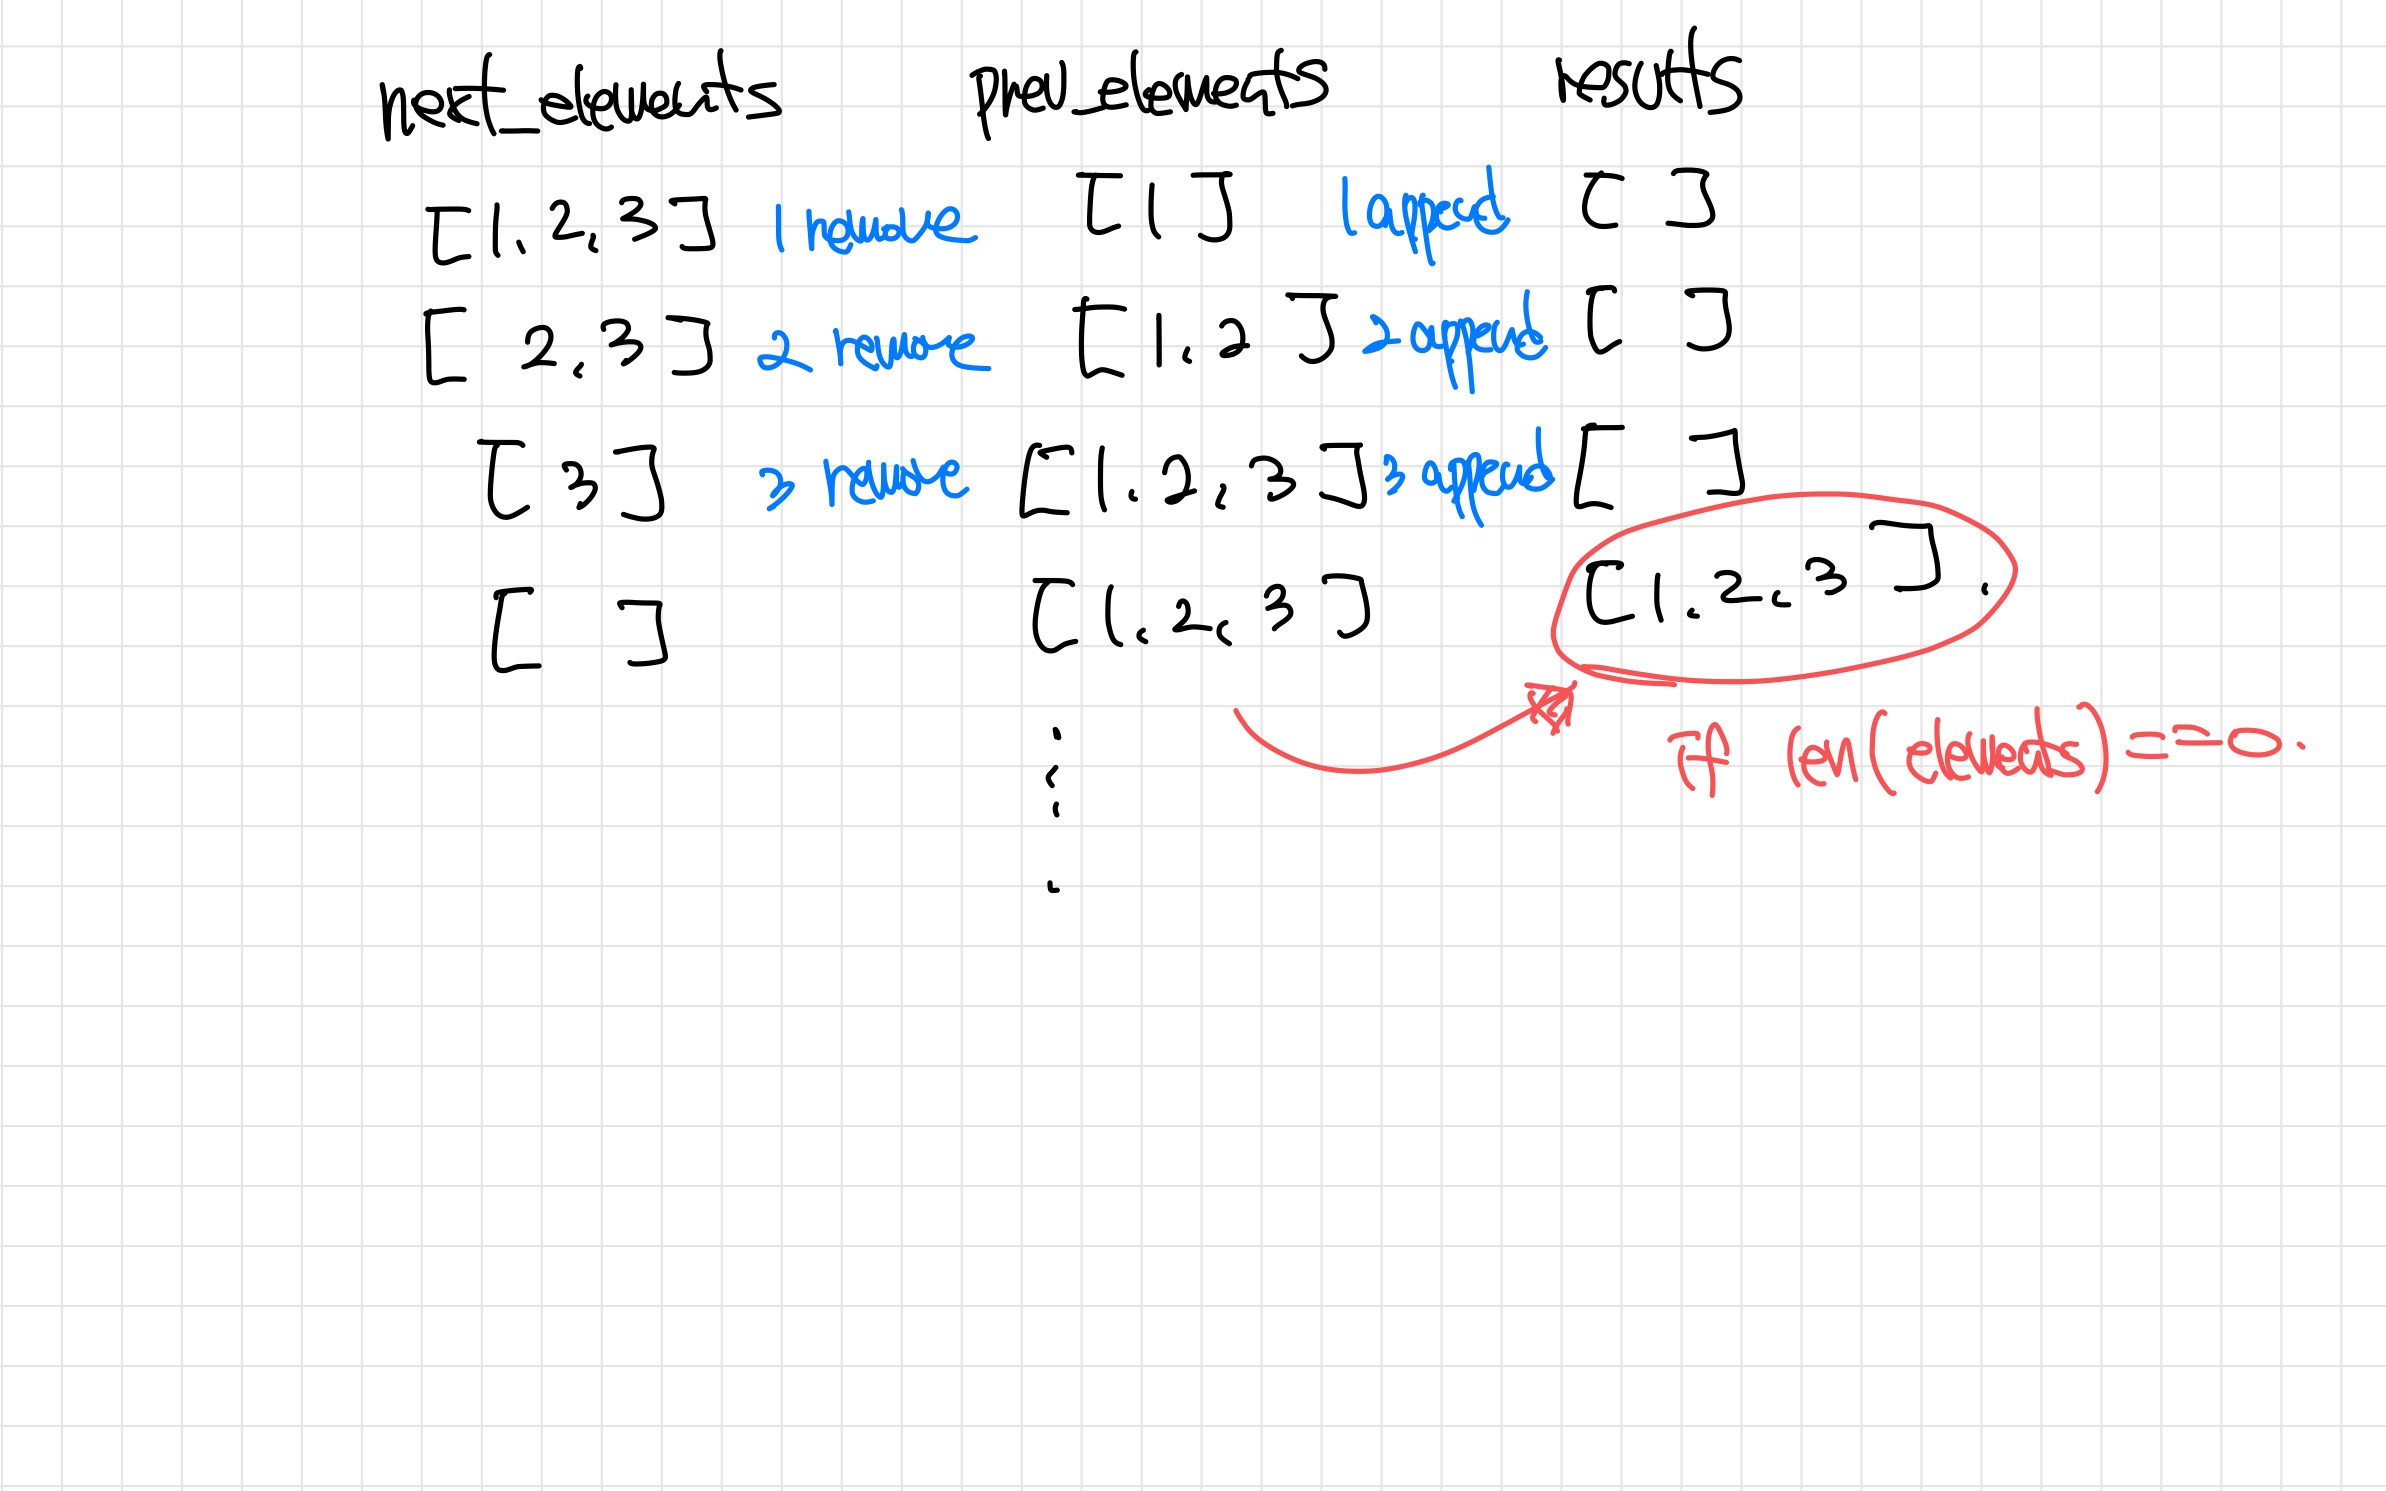 next_elements prev_elements results
[1, 2, 3] 1 remove [1] 1 append [ ]
[ 2, 3] 2 remove [1, 2] 2 append [ ]
[ 3] 3 remove [1, 2, 3] 3 append [ ]
[ ] [1, 2, 3] [1, 2, 3],
if len(elements) == 0.